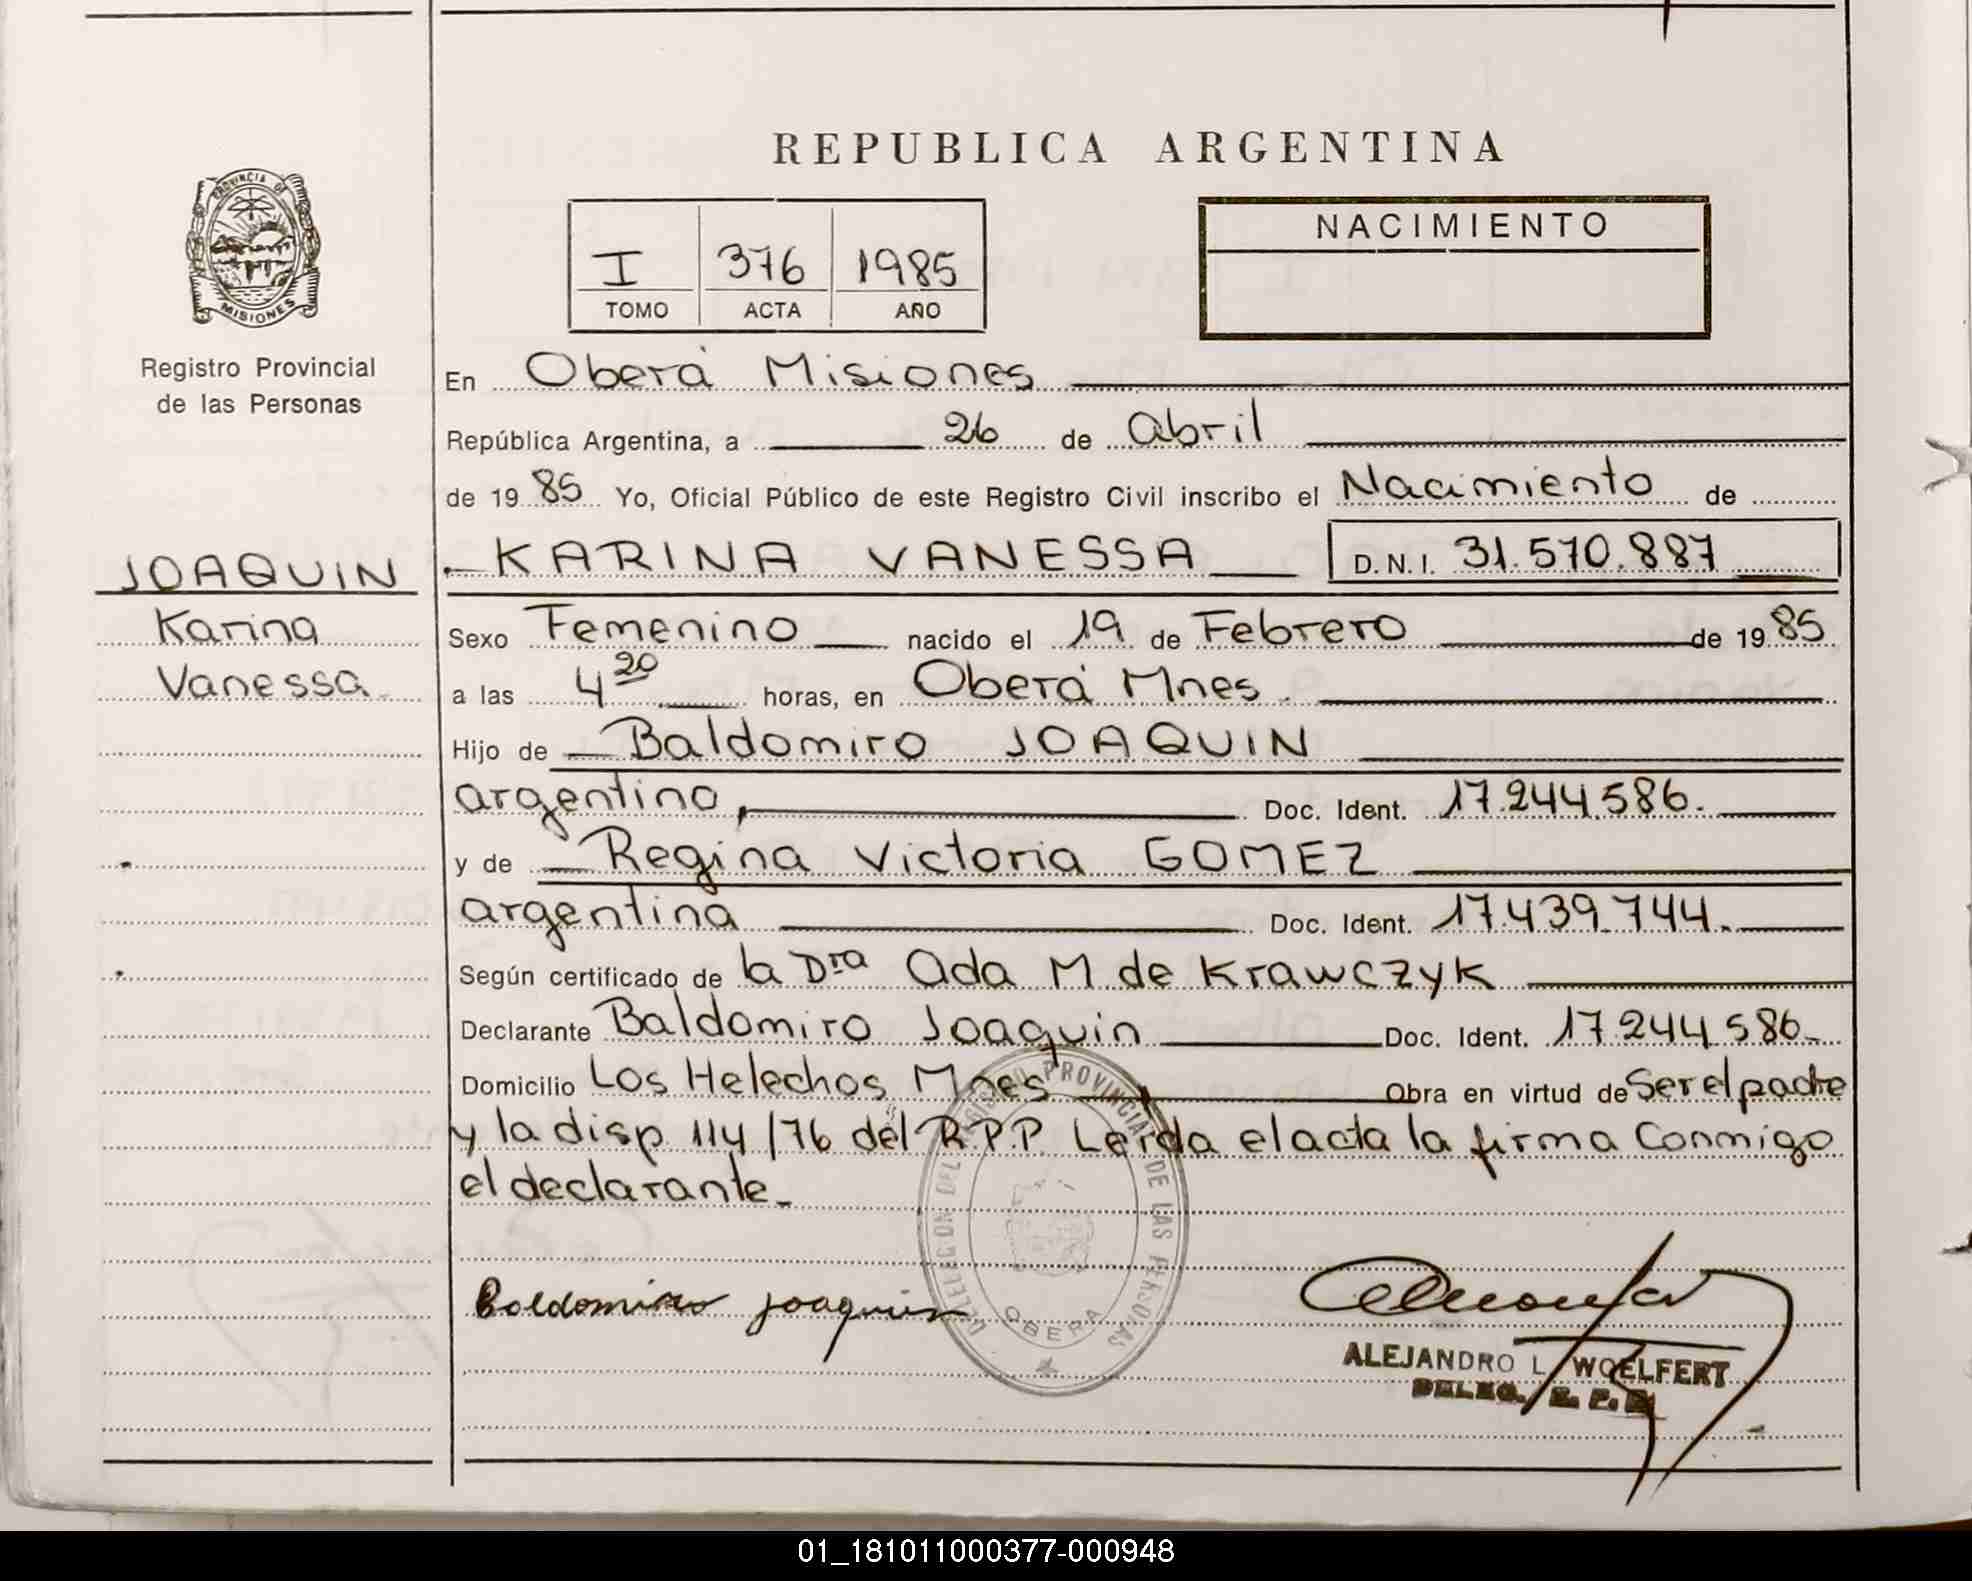 REPUBLICA ARGENTINA
PROVINCIA DE
MISIONES
Registro Provincial
de las Personas
I 376 1985
TOMO ACTA AÑO
NACIMIENTO
En Oberá Misiones
República Argentina, a 26 de Abril
de 19 85 Yo, Oficial Público de este Registro Civil inscribo el Nacimiento de
JOAQUIN
Karina
Vanessa
KARINA VANESSA D.N.I. 31.570.887
Sexo Femenino nacido el 19 de Febrero de 19 85
a las 4 20 horas, en Oberá Mnes.
Hijo de Baldomiro JOAQUIN
argentino, Doc. Ident. 17.244.586.
y de Regina Victoria GOMEZ
argentina Doc. Ident. 17.439.744.
Según certificado de la Dra Ada M de Krawczyk
Declarante Baldomiro Joaquin Doc. Ident. 17.244.586.
Domicilio Los Helechos Mnes Obra en virtud de Ser el padre
y la disp. 114/76 del R.P.P Leída el acta la firma Conmigo
el declarante.
DELEGCION DEL REGISTRO PROVINCIAL DE LAS PERSONAS
OBERA
Baldomiro Joaquin
ALEJANDRO L. WOELFERT
DELEG. R. P. P.
01_181011000377-000948